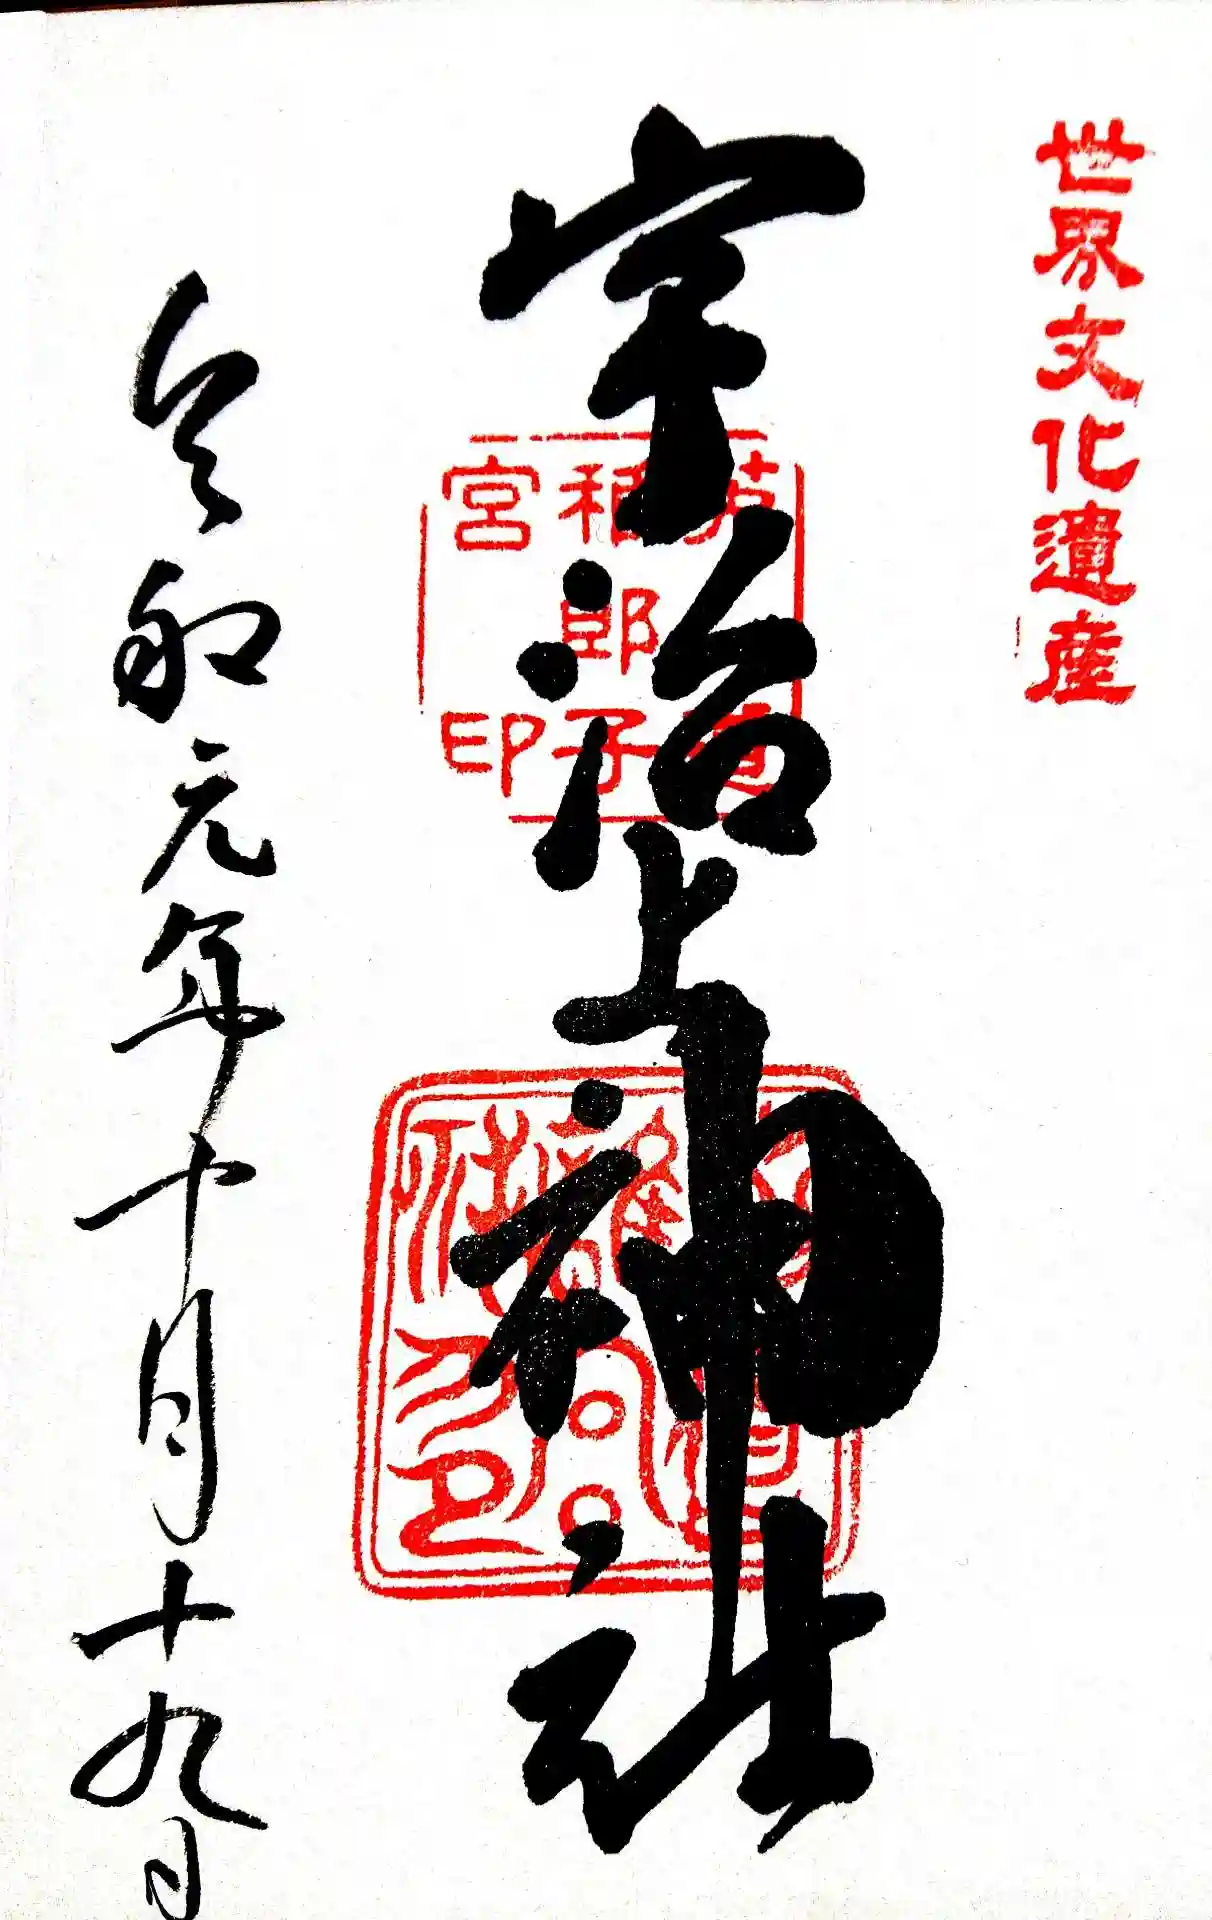 世界文化遺産
宇治上神社
菟道
稚郎子
宮印
令和元年十月十九日